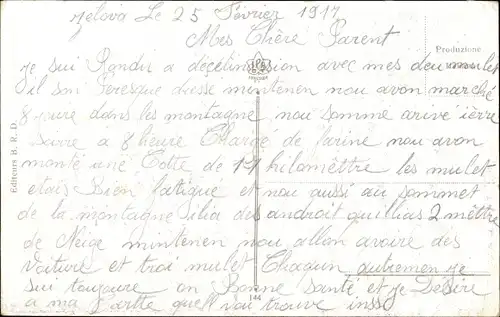 Zelova Le 25 Février 1917
Mes Chère Parent
Produzione
je sui Rendu a deçetination avec mes deu mulles
il son Presque duse mintenen nou avon marché
8 eure dans les montagne nou somme arive ière
Saure a 8 heure Chargé de farine nou avon
monté une Cotte de 14 kilomèttre les mulet
etais bien fatigue et nou aussi au sommet
de la montagne ilia des androit quillias 2 mèttre
de Neige mintenen nou allon avoire des
Voiture et troi mulet Chaqun autremen je
sui toujoure en Bonne Santé et je Désire
a ma Cartte quell vou trouve insso
Editeurs B. P. D.
144